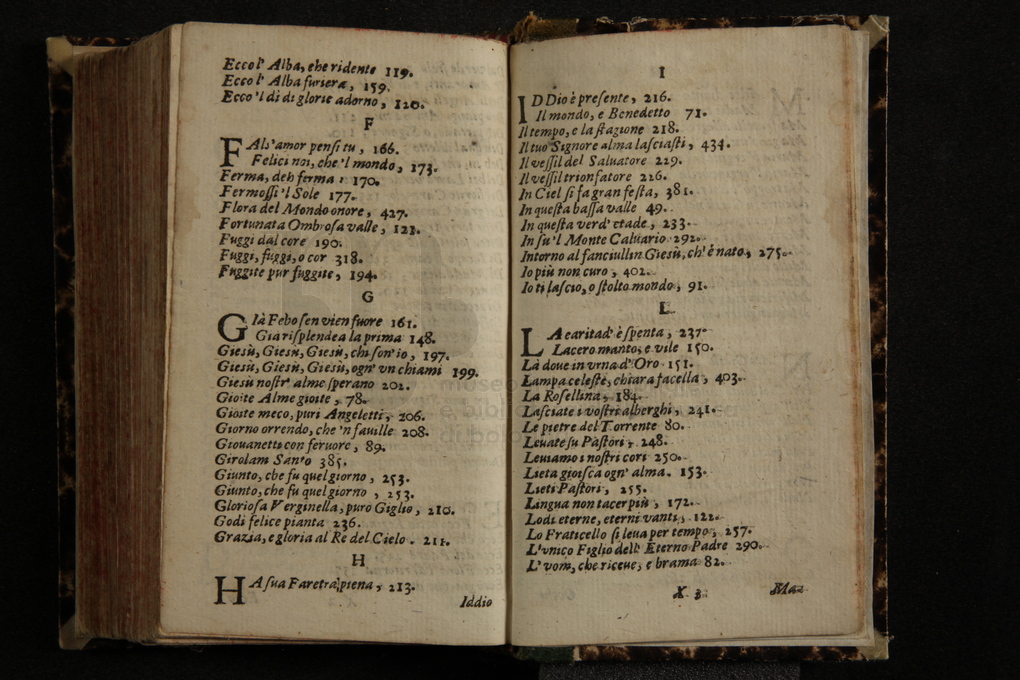 Ecco l' Alba, che ridente 119.
Ecco l' Alba foriera, 159.
Ecco 'l dì di glorie adorno, 120.
F
FAls' amor pensi tu, 166.
Felici noi, che 'l mondo, 173.
Ferma, deh ferma: 170.
Fermossi 'l Sole 177.
Flora del Mondo onore, 427.
Fortunata Ombrosa valle, 123.
Fuggi dal core 190.
Fuggi, fuggi, o cor 318.
Fuggite pur fuggite, 194.
G
GIà Febo sen vien fuore 161.
Gia risplendea la prima 148.
Giesù, Giesù, Giesù, chi son' io, 197.
Giesù, Giesù, Giesù, ogn' vn chiami 199.
Giesù nostr' alme sperano 202.
Gioite Alme gioite, 78.
Gioite meco, puri Angeletti, 206.
Giorno orrendo, che 'n fauille 208.
Giouanetti con feruore, 89.
Girolam Santo 385.
Giunto, che fu quel giorno, 253.
Giunto, che fu quel giorno, 253.
Gloriosa Verginella, puro Giglio, 210.
Godi felice pianta 236.
Grazia, e gloria al Re del Cielo. 211.
H
HA sua Faretra piena, 213.
Iddio
I
IDDio è presente, 216.
Il mondo, e Benedetto 71.
Il tempo, e la stagione 218.
Il tuo Signore alma lasciasti, 434.
Il vessil del Saluatore 229.
Il vessil trionfatore 226.
In Ciel si fa gran festa, 381.
In questa bassa valle 49.
In questa verd' etade, 233.
In su 'l Monte Caluario 292.
Intorno al fanciullin Giesù, ch' è nato, 275.
Io più non curo, 402.
Io ti lascio, o stolto mondo, 91.
L
LA caritad' è spenta, 237.
Lacero manto, e vile 150.
Là doue in vrna d' Oro 151.
Lampa celeste, chiara facella, 403.
La Rosellina, 184.
Lasciate i vostri alberghi, 241.
Le pietre del Torrente 80.
Leuate su Pastori, 248.
Leuiamo i nostri cori 250.
Lieta gioisca ogn' alma. 153.
Lieti Pastori, 255.
Lingua non tacer più, 172.
Lodi eterne, eterni vanti, 122.
Lo Fraticello si leua per tempo, 257.
L' vnico Figlio dell' Eterno Padre 290.
L' vom, che riceue, e brama 82.
X 3